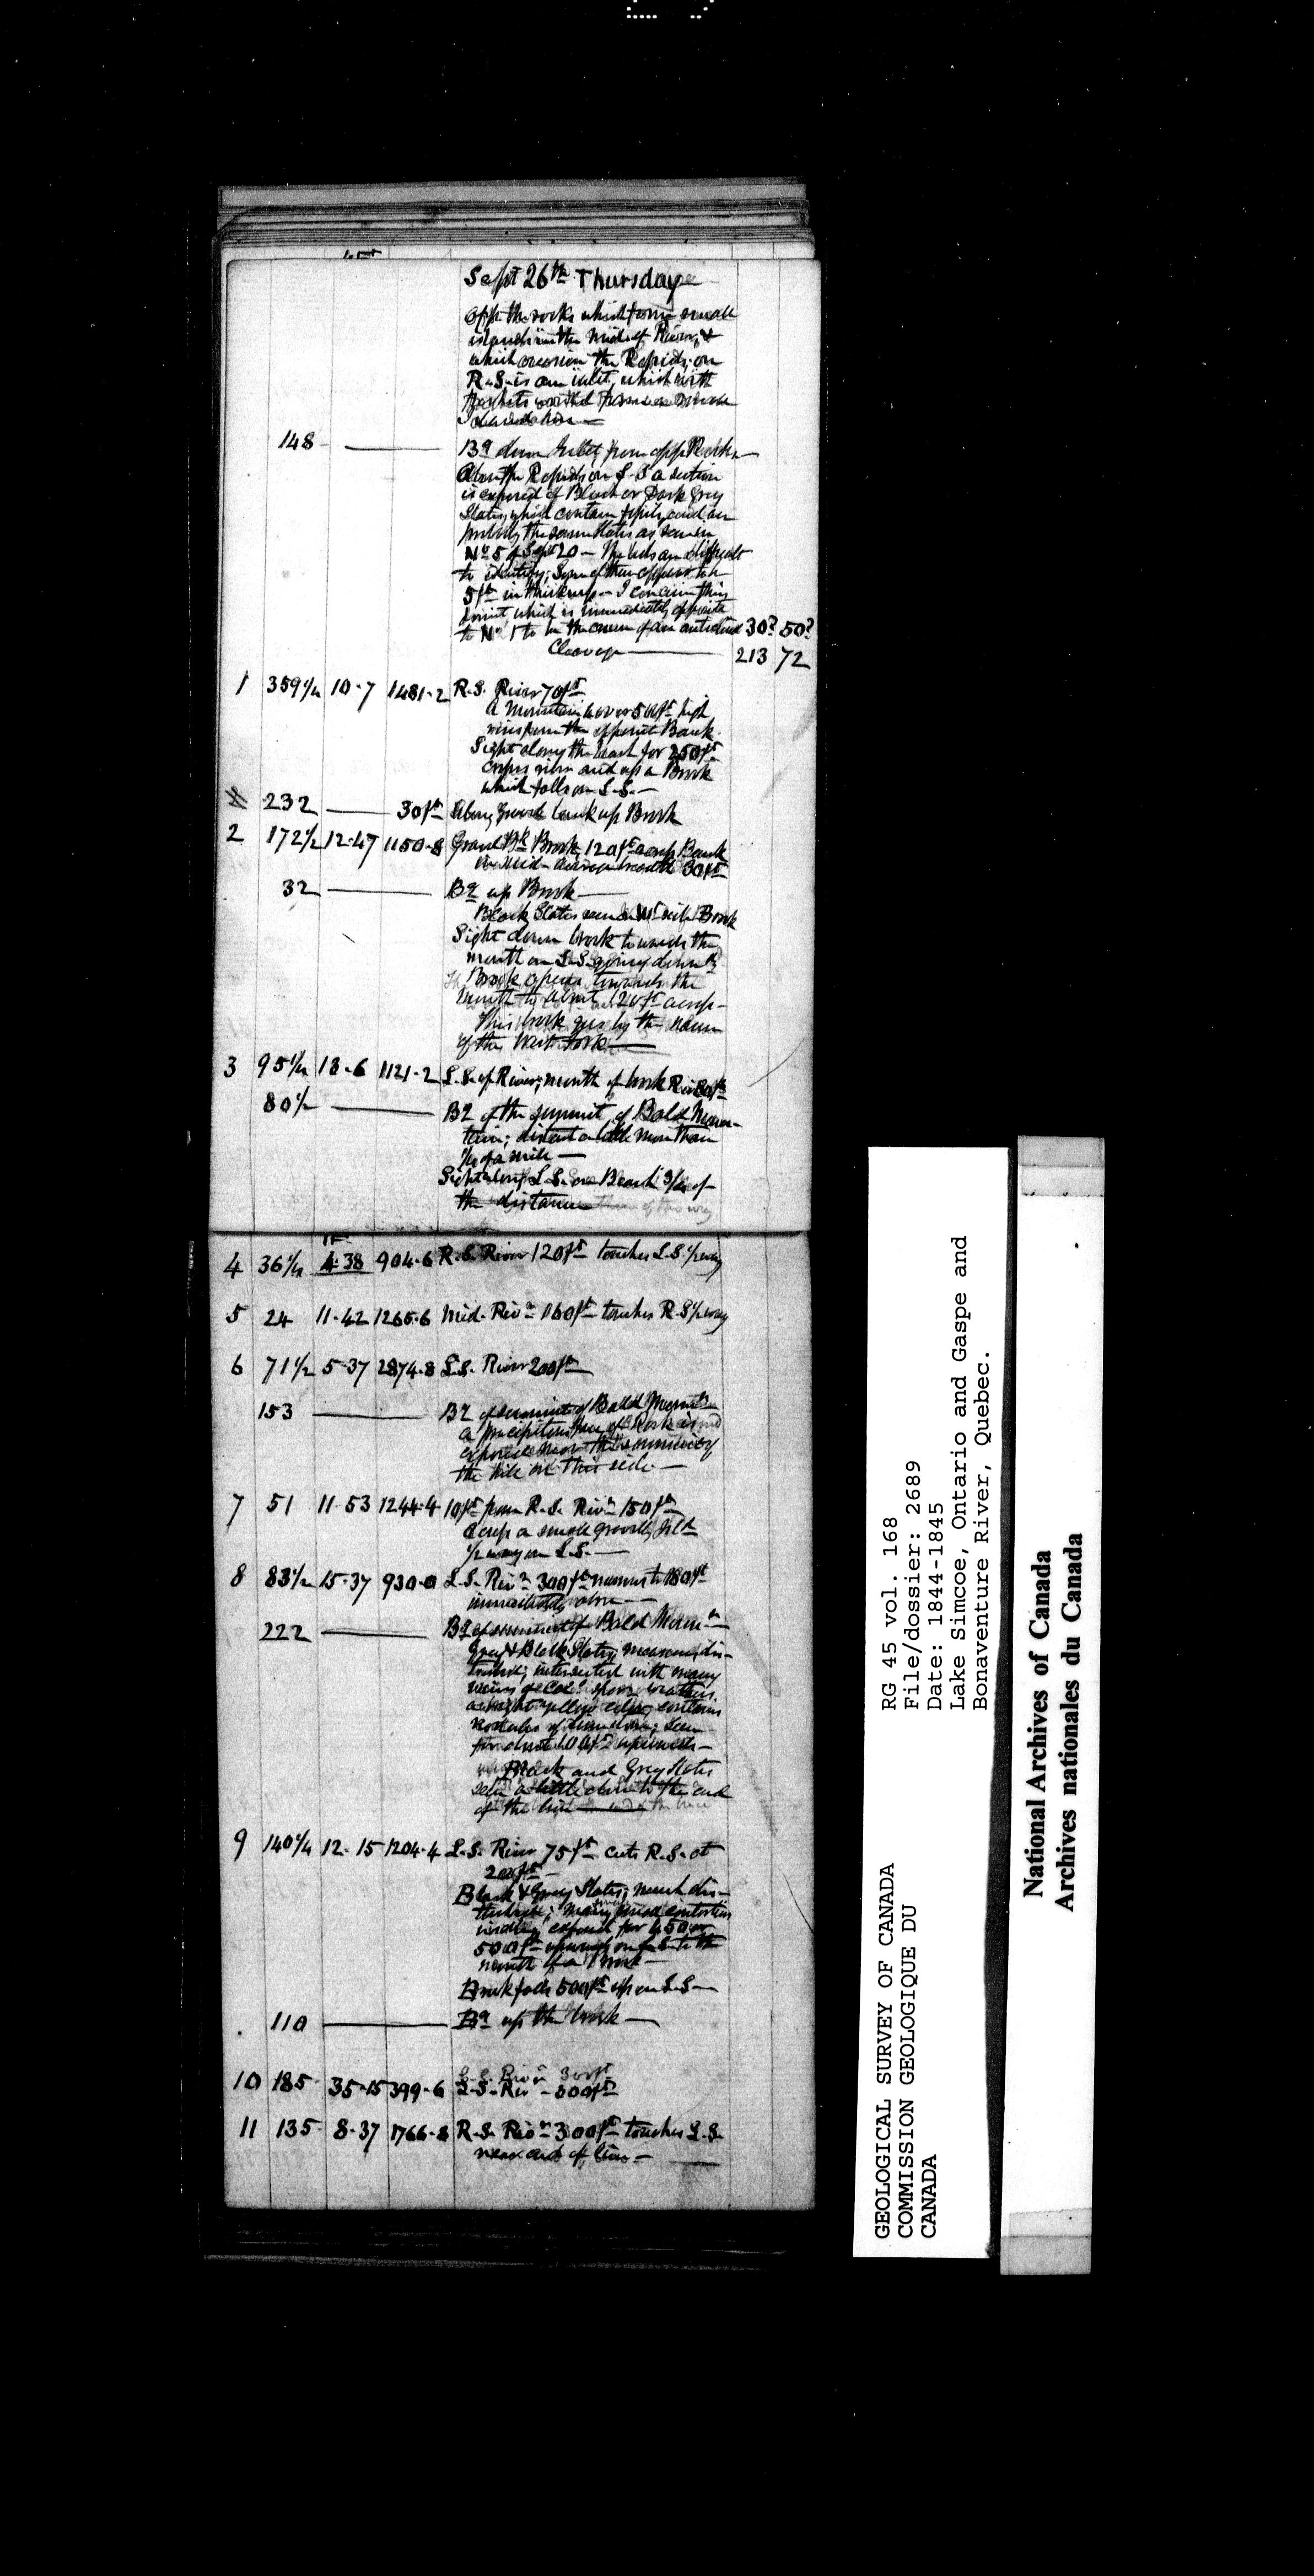 Sept 26th Thursday
Opp. the rocks which form small
islands in the Mid. of River, &
which occasion the Rapids; on
R.S. is an inlet, which with
148 Bg down Inlet from opp Rocks
Above the Rapids on L.S a section
is exposed of Black or Dark Grey
Slates, which contain fossils, and are
probably the same Slates as seen in
No 5 of Sept 20 — The beds are difficult
to identify; Some of them appear to be
5 ft in thickness — I conceive this
point which is immediately opposite
to No 1 to be the crown of an anticlinal 30? 50?
Cleavage 213 72
1 359 1/4 10-7 1481-2 R.S. River 70 ft
A Mountain over 500 ft high
rises from the opposite Bank.
Sight along the beach for 250 ft
across river and up a Brook
which falls on L.S.—
232 30 ft Along Gravel bank up Brook
2 172 1/2 12-47 1150-8 Gravel Bk Brook, 120 ft across Bank
in Mid - average breadth 30 ft
32 Bg up Brook —
Black Slates seen on side Brook
Sight down brook towards the
mouth on L.S. going down
Brook opens towards the
mouth to about 120 ft across —
This brook goes by the name
of the West fork —
3 95 1/4 18-6 1121-2 L.S. of River; mouth of brook
80 1/2 Bg of the summit of Bald Moun-
tain; distant a little more than
of a mile —
Sight along L.S. on Beach 3/4 of
the distance
4 36 1/4 4-38 904-6 R.S. River 120 ft touches L.S. 1/2 way
5 24 11-42 1265-6 Mid. Rivr 160 ft touches R.S 1/2 way
6 71 1/2 5-37 2874-8 L.S. River 200 ft
153 Bg of summit of Bald Mountain
a precipitous face of Rock is
exposed near the summit of
the hill on this side —
7 51 11-53 1244-4 10 ft from R.S. Rivr 150 ft
Across a small gravelly Isld
1/2 way on L.S. —
8 83 1/2 15-37 930-0 L.S. Rivr 300 ft narrows to 180 ft
immediately above —
222 Bg of summit of Bald Mounn
Grey & Black Slaty measures, dis-
turbed; intersected with many
veins of Calc spar, weathers
a bright yellow edge, contains
Nodules of
for about 100 ft upwards —
Black and Grey Slates
seen a little above to the end
of the line
9 140 1/4 12-15 1204-4 L.S. River 75 ft cuts R.S. at
200 ft —
Black & Grey Slates; much dis-
turbed; many contortions
exposed for 450 or
500 ft upwards on to the
mouth of a Brook —
Brook falls 500 ft up on L.S —
110 Bg up the brook —
10 185 35-15 399-6 L.S. Rivr — 300 ft
11 135 8-37 1766-8 R.S. Rivr 300 ft touches L.S.
near end of line —
GEOLOGICAL SURVEY OF CANADA
COMMISSION GEOLOGIQUE DU
CANADA
RG 45 vol. 168
File/dossier: 2689
Date: 1844-1845
Lake Simcoe, Ontario and Gaspe and
Bonaventure River, Quebec.
National Archives of Canada
Archives nationales du Canada